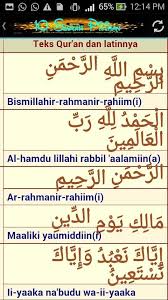 65% 12:14 PM
Teks Qur'an dan latinnya
بِسْمِ اللَّهِ الرَّحْمَنِ
الرَّحِيمِ
Bismillahir-rahmanir-rahiim(i)
الْحَمْدُ لِلَّهِ رَبِّ
الْعَالَمِينَ
Al-hamdu lillahi rabbil 'aalamiin(a)
الرَّحْمَنِ الرَّحِيمِ
Ar-rahmanir-rahiim(i)
مَالِكِ يَوْمِ الدِّينِ
Maaliki yaumiddiin(i)
إِيَّاكَ نَعْبُدُ وَإِيَّاكَ
نَسْتَعِينُ
Ii-yaaka na'budu wa-ii-yaaka